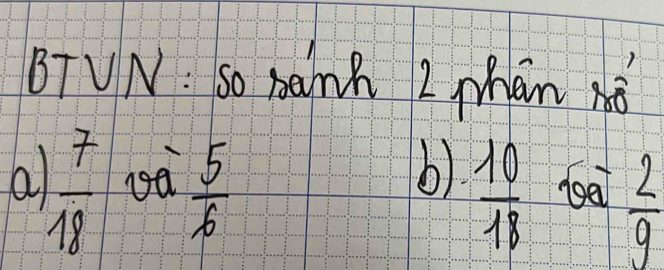 BTVN: so sánh 2 phân số
a) 7/18 và 5/6 b). 10/18 và 2/9